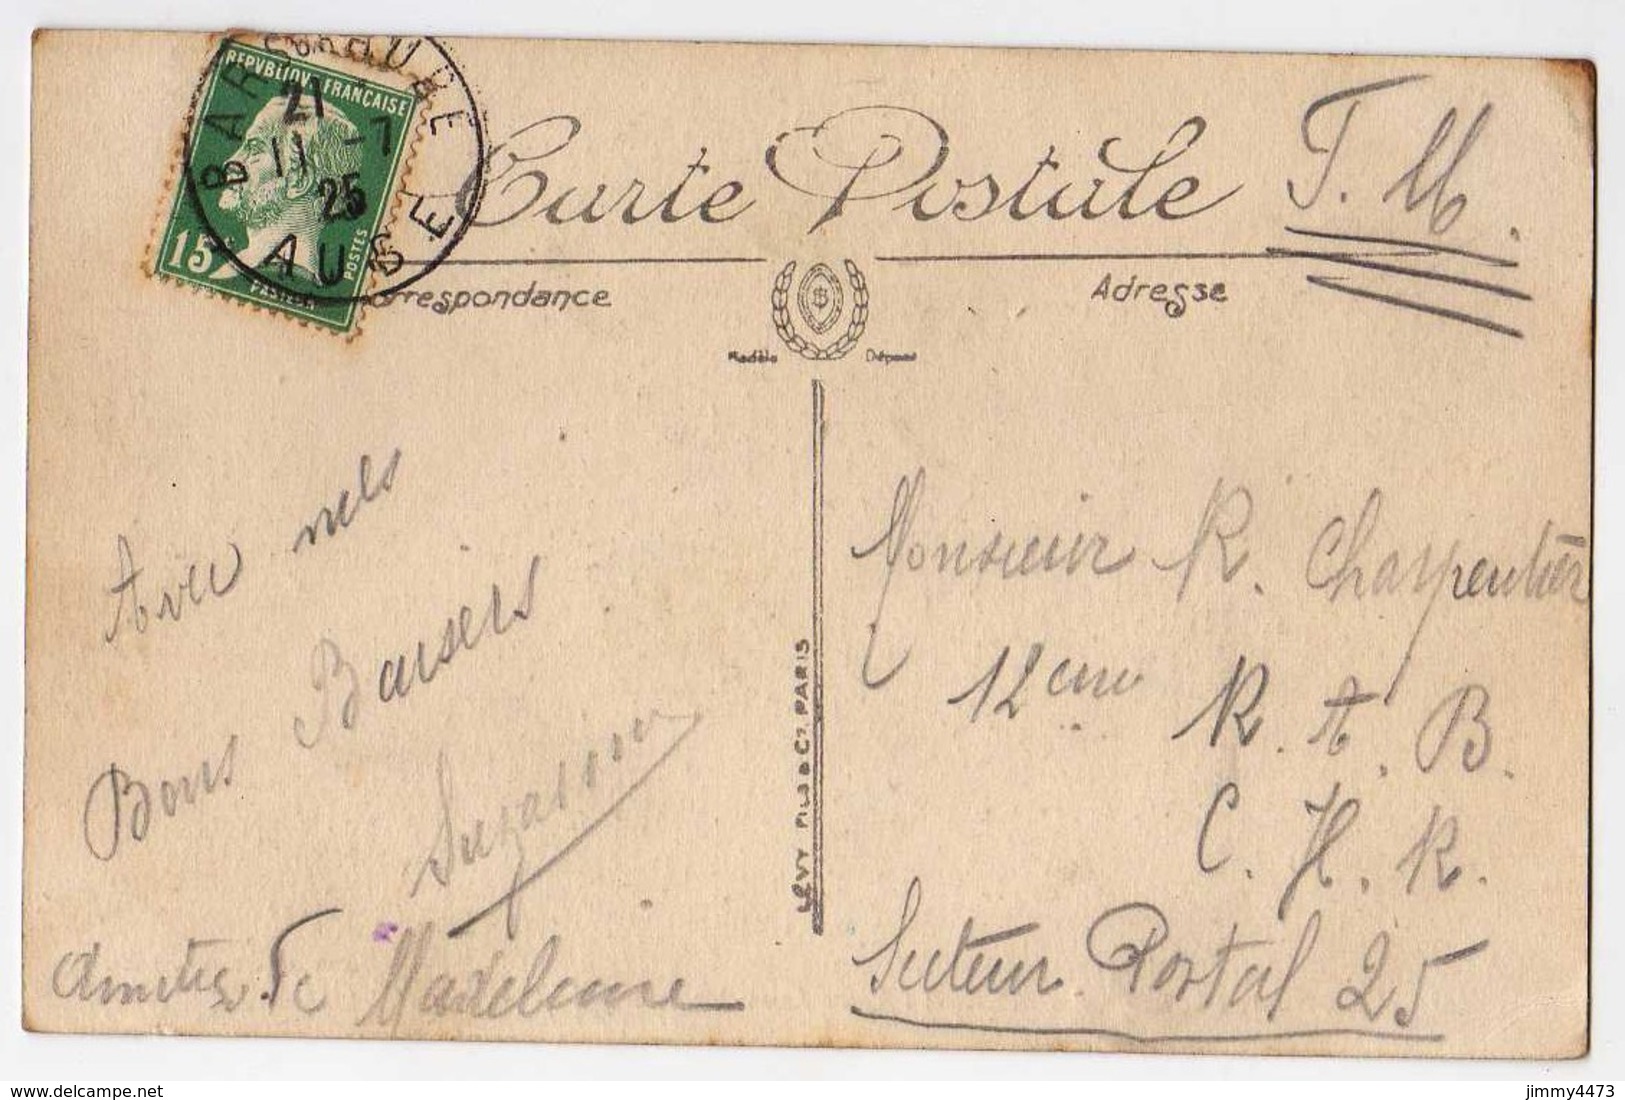 REPVBLIQVE FRANÇAISE
15c
POSTES
PASTEUR
BAR SUR AUBE
21
11 -7
25
AUBE
Carte Postale
F. M.
Correspondance
Adresse
Modèle Déposé
Avec mes
Bons Baisers
Suzanne
Amitiés de Madeleine
LEVY FILS & Cie PARIS
Monsieur R. Charpentier
12eme R. A. B.
C. H. R.
Secteur Postal 25
delcampe.net
jimmy4473